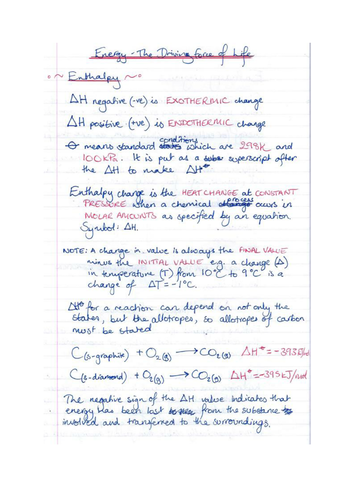 Energy - The Driving Force of Life
~ Enthalpy ~
ΔH negative (-ve) is EXOTHERMIC change
ΔH positive (+ve) is ENDOTHERMIC change
⊖ means standard conditions which are 298K and
100kPa. It is put as a superscript after
the ΔH to make ΔH⊖
Enthalpy change is the HEAT CHANGE at CONSTANT
PRESSURE when a chemical process occurs in
MOLAR AMOUNTS as specified by an equation
Symbol: ΔH.
NOTE: A change in value is always the FINAL VALUE
minus the INITIAL VALUE e.g. a change (Δ)
in temperature (T) from 10°C to 9°C is a
change of ΔT = -1°C.
ΔH⊖ for a reaction can depend on not only the
states, but the allotropes, so allotropes of carbon
must be stated
C(s-graphite) + O₂(g) → CO₂(g) ΔH⊖ = -393kJ/mol
C(s-diamond) + O₂(g) → CO₂(g) ΔH⊖ = -395kJ/mol
The negative sign of the ΔH value indicates that
energy has been lost from the substance
involved and transferred to the surroundings.